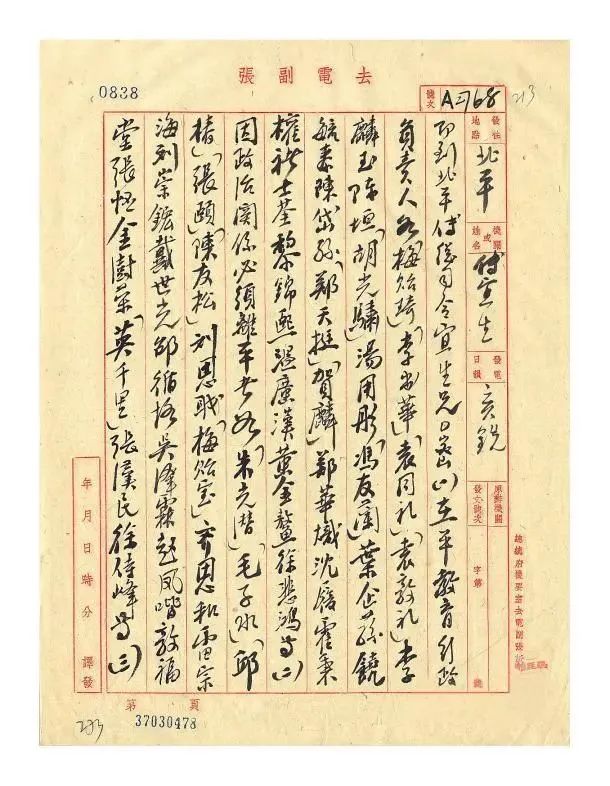 去電副張
0838
號次
A 2768
213
發往地點
北平
機關或姓名
傅宜生
發電日韻
亥銑
原辦機關發文號次
字第
號
即到北平傅總司令宜生兄密(一)在平教育行政
負責人如梅貽琦、李書華、袁同禮、袁敦禮、李
麟玉、陳垣、胡先驌、湯用彤、馮友蘭、葉企孫、饒
毓泰、陳岱孫、鄭天挺、賀麟、鄭華熾、沈履、霍秉
權、褚士荃、黎錦熙、溫廣漢、黃金鰲、徐悲鴻等(二)
因政治關係必須離平者如朱光潛、毛子水、邱
椿、張頤、陳友松、劉思職、梅貽寶、齊思和、雷宗
海、劉崇鋐、戴世光、邵循恪、吳澤霖、趙鳳喈、敦福
堂、張恆、金澍榮、英千里、張漢民、徐侍峰等(三)
年月日時分譯發
總統府機要室去電副張
第 頁
37030478
213